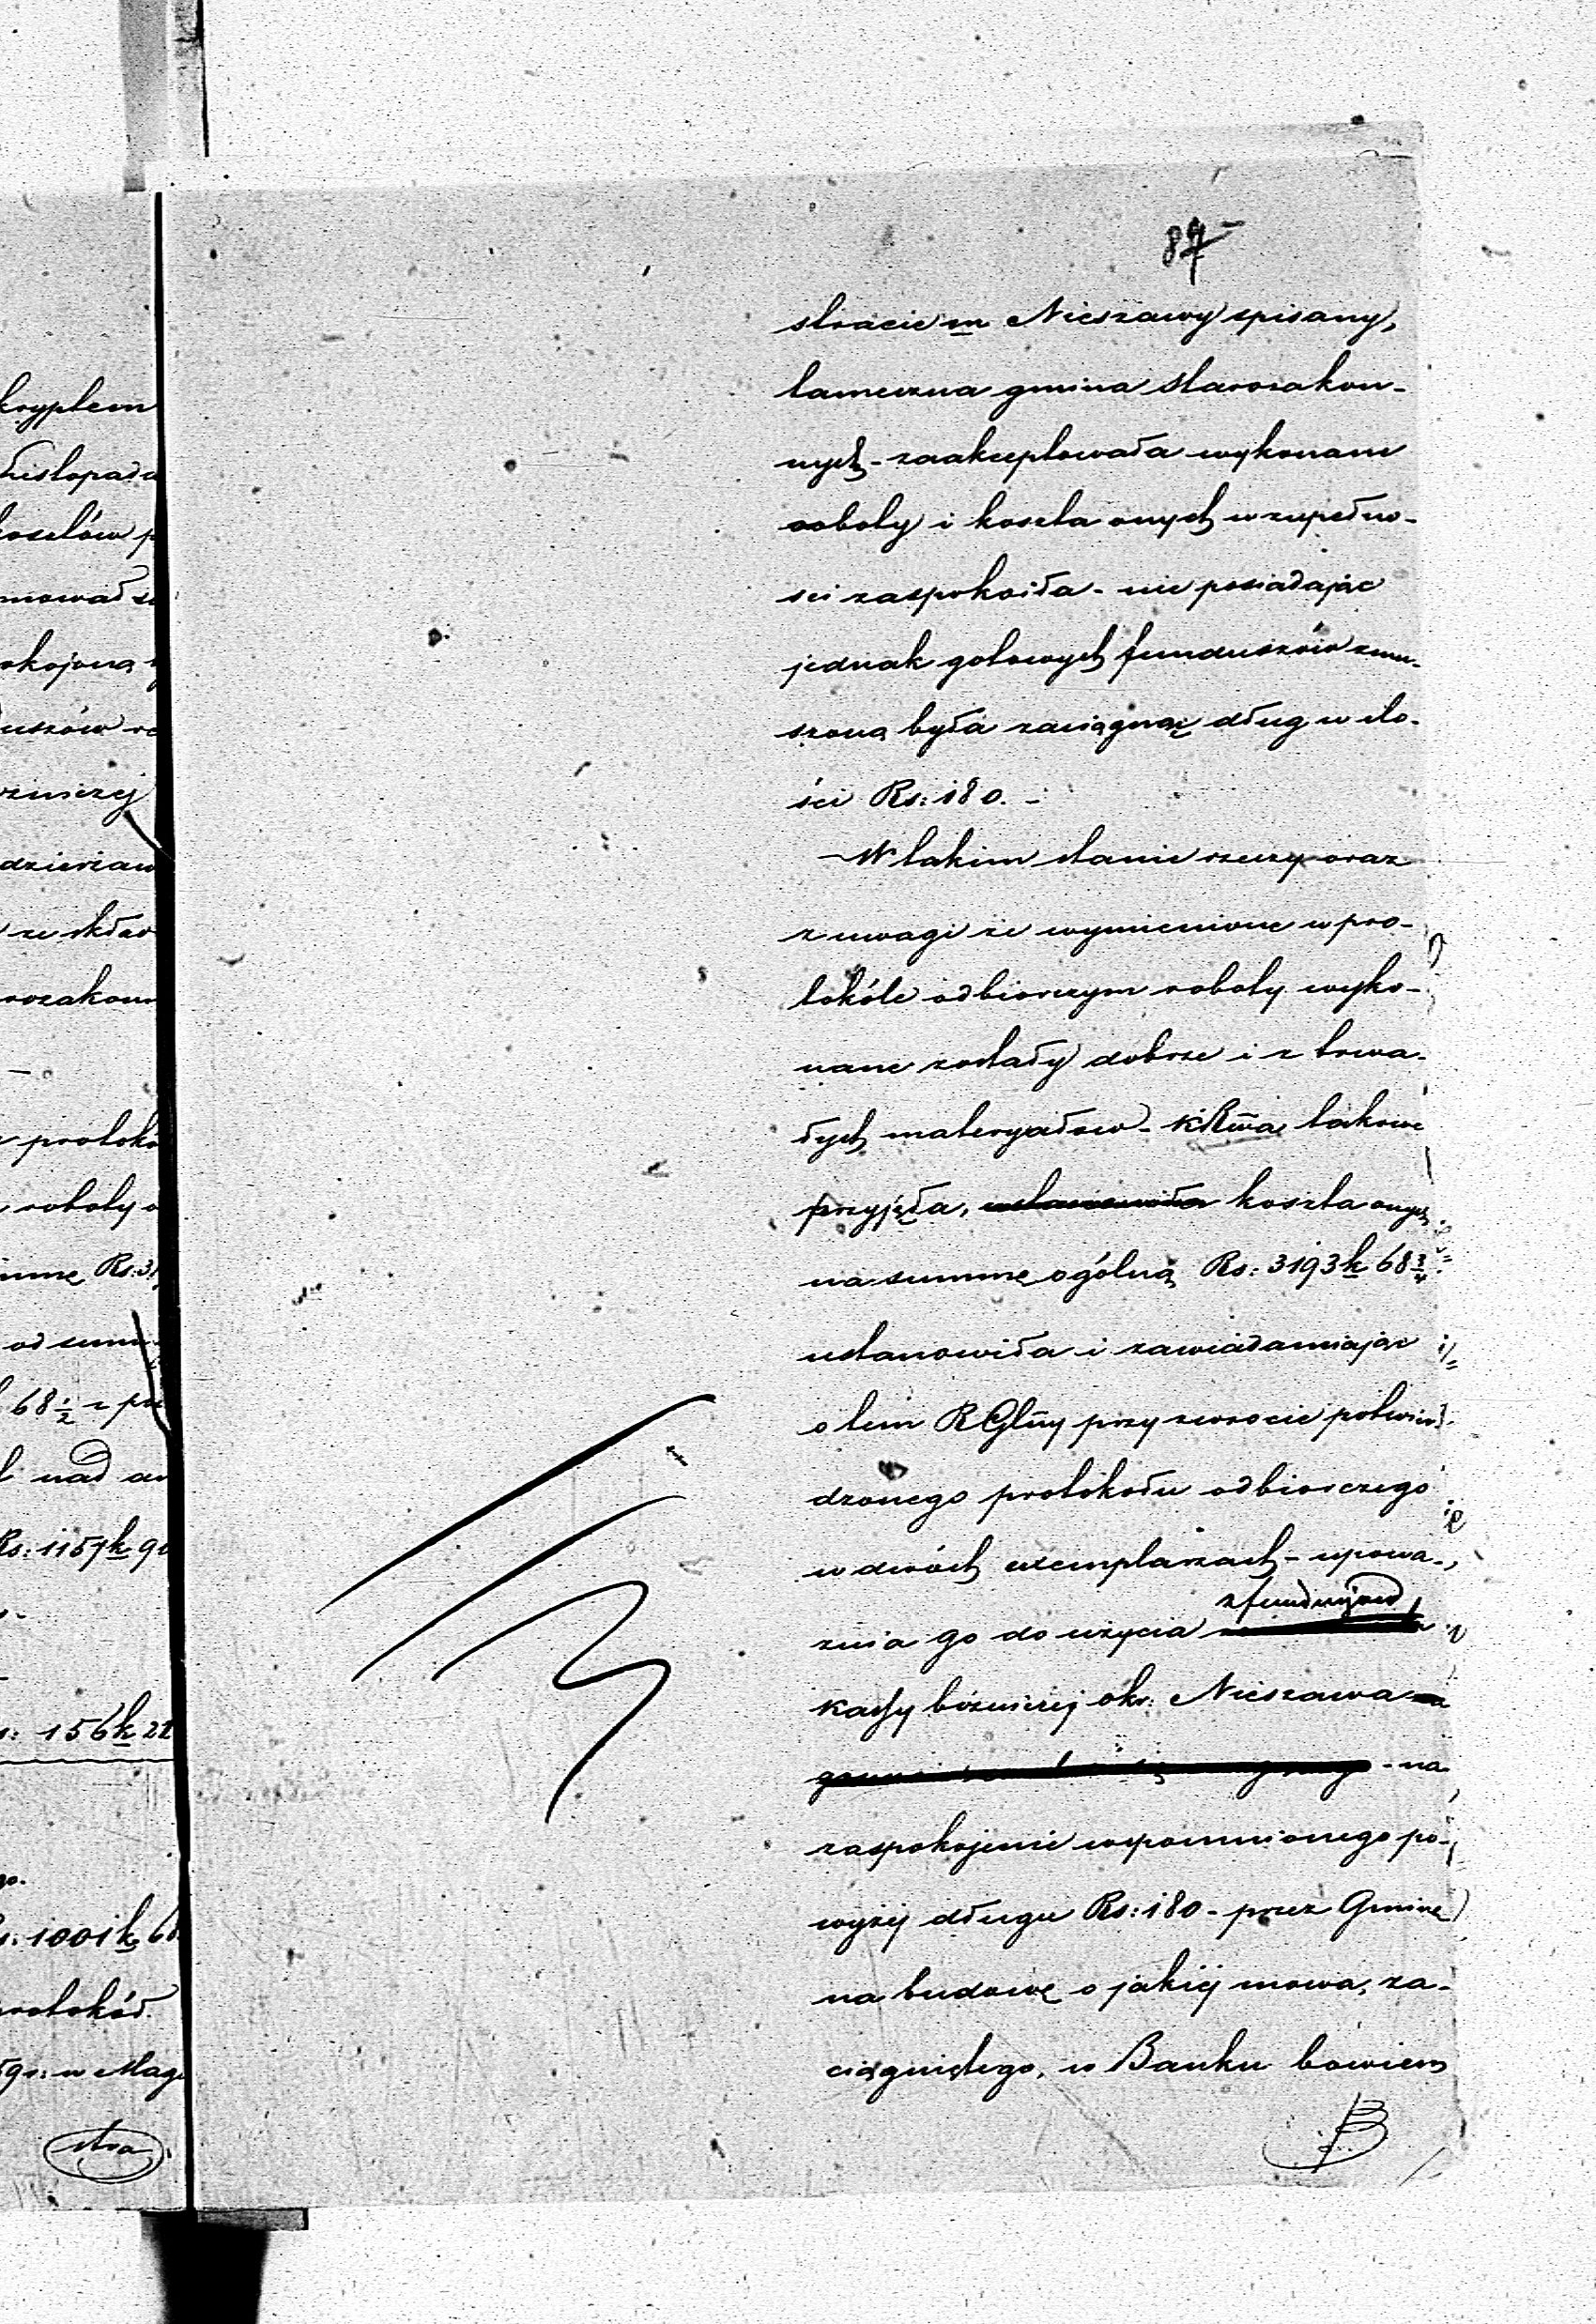 87
stracie m Nieszawy spisany,
tameczna gmina starozakon-
nych - zaakceptowała wykonane
roboty i koszta onych w zupełno-
sci zaspokoiła - nie posiadając
jednak gotowych funduszów zmu-
szoną była zaciągnąć dług w ilo-
ści Rs: 180. -
W takim stanie rzeczy oraz
z uwagi że wymienione w pro-
tokóle odbiorczym roboty wyko-
nane zostały dobrze i z trwa-
łych materyałow - KRwa takowe
przyjęła, koszta onych
na summę ogólną Rs: 3193 k 68 3/4
ustanowiła i zawiadamiając
o tem RGlny przy zwrocie potwier-
dzonego protokołu odbiorczego
w dwóch exemplarzach - upowa-
żnia go do użycia z
kassy bóżniczej okr: Nieszawa
- na
zaspokojenie wspomnionego po-
wyżej długu Rs: 180 - przez Gminę
na budowę o jakiej mowa, za-
ciągniętego, w Banku bowiem
kryptem
Listopada
kosztów p
dzierżaw
ze skład
rozakonn
protokó
roboty o
Rs: 3
od summ
68 1/2 z
nad an
Rs: 1157 k 9
156 k 22
1001 k 68
protokół.
w Mag
stra